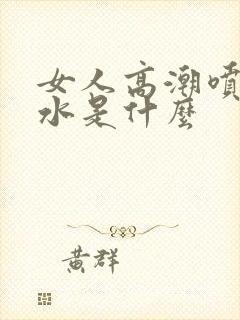 女人高潮噴
水是什麼
黃群